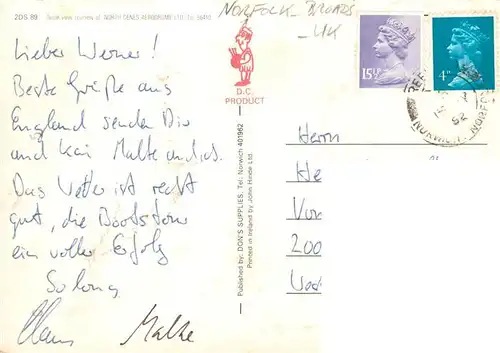 2DS 89 Seen view courtesy of NORTH DENES AERODROME LTD. Tel.
NORFOLK BROADS
- UK
Lieber Werner!
Beste Grüße aus
England senden Dir
und Kai Malte und ich.
Das Wetter ist recht
gut, die Bootstour
ein voller Erfolg
So long
Claus Malte
D.C.
PRODUCT
Published by: DON'S SUPPLIES, Tel: Norwich 401962
Printed in Ireland by John Hinde Ltd.
15½P
4P
NORWICH NORFOLK
82
Herrn
He
Vo
200